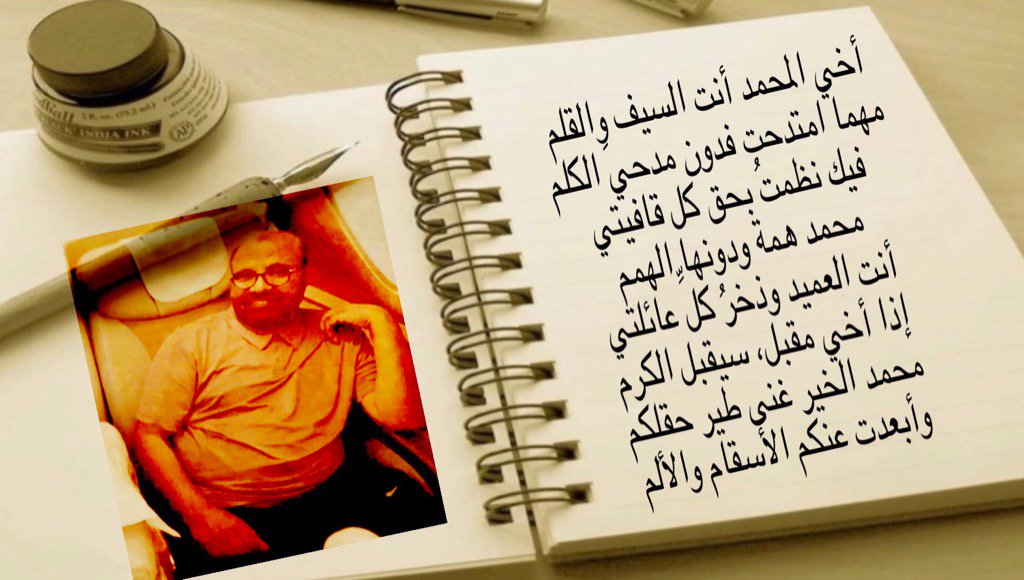 أخي المحمد أنت السيف والقلم
مهما امتدحت فدون مدحي الكلم
فيك نظمتُ بحق كل قافيتي
محمد همة ودونها الهمم
أنت العميد وذخرُ كلِّ عائلتي
إذا أخي مقبل، سيقبل الكرم
محمد الخير غنى طير حقلكم
وأبعدت عنكم الأسقام والألم
2 fl. oz. (59,2 mL)
INDIA INK
AP